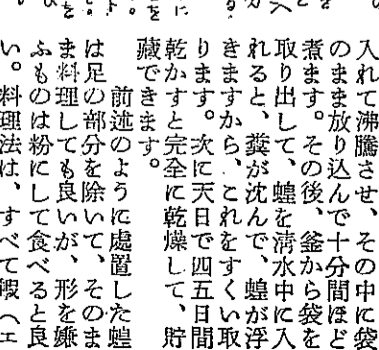 入れて沸騰させ、その中に袋
のまま放り込んで十分間ほど
煮ます。その後、釜から袋を
取り出して、蝗を清水中に入
れると、糞が沈んで、蝗が浮
きますから、これをすくい取
ります。次に天日で四五日間
乾かすと完全に乾燥して、貯
藏できます。
前述のように處置した蝗
は足の部分を除いて、そのま
ま料理しても良いが、形を嫌
ふものは粉にして食べると良
い。料理法は、すべて蝦（エ